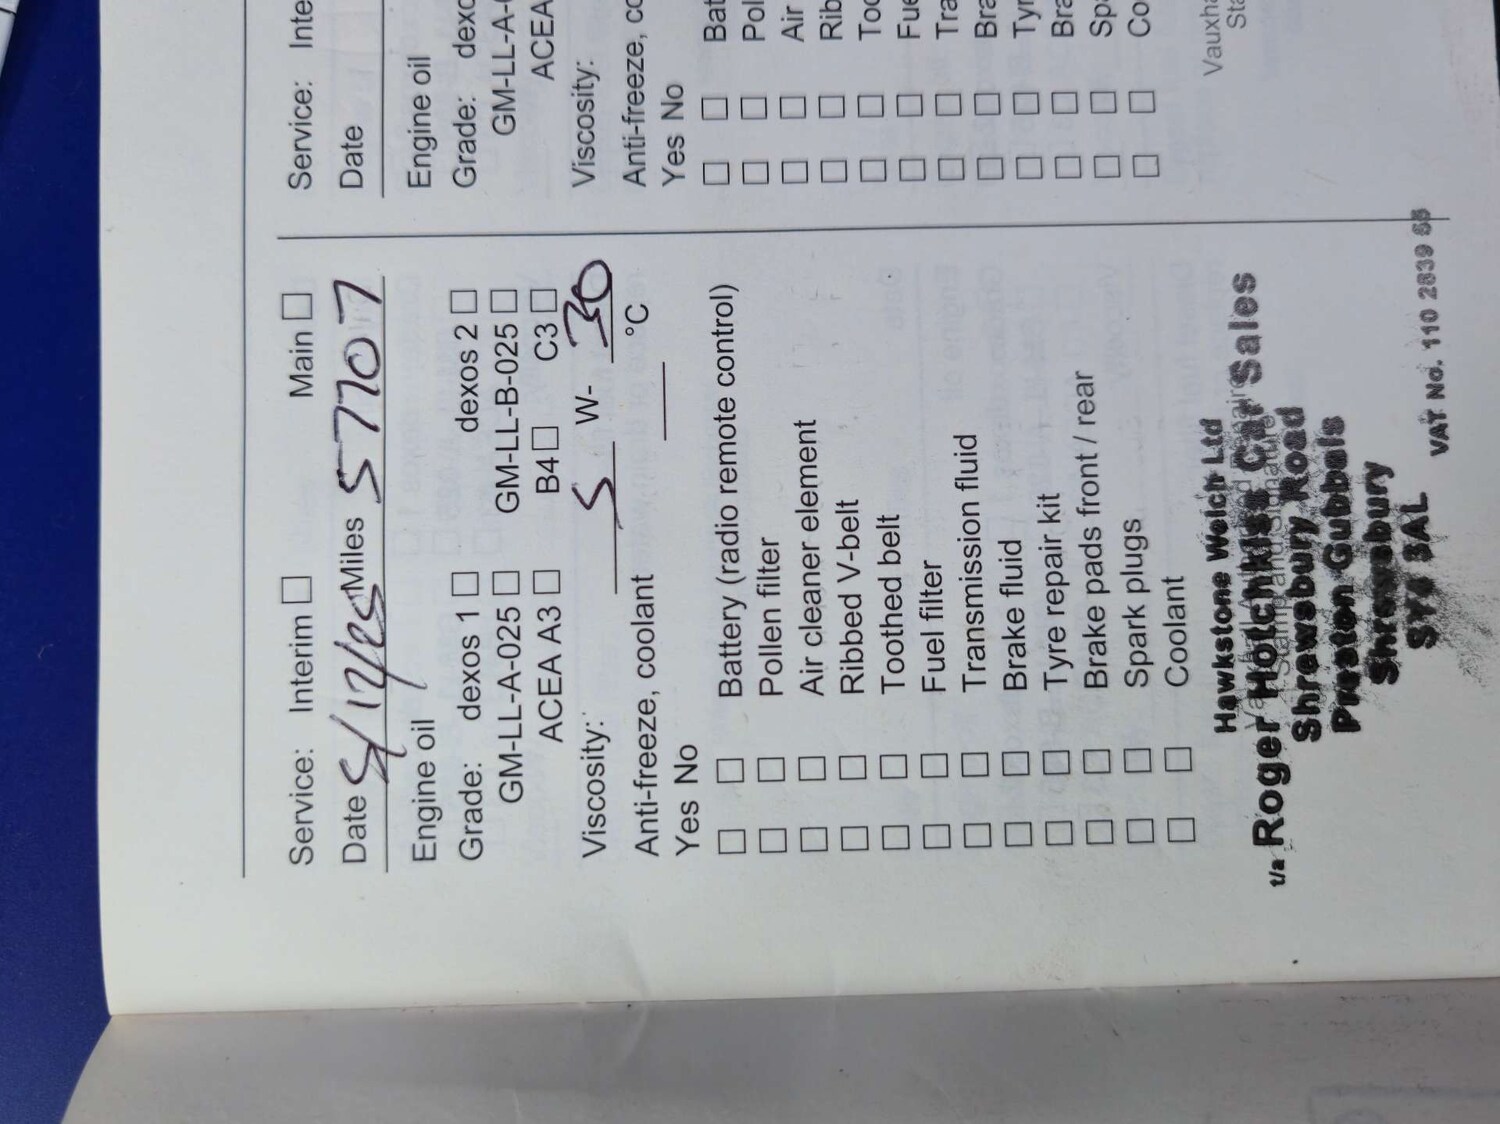 Service: Interim Main
Date 5/12/25 Miles 57707
Engine oil
Grade: dexos 1 dexos 2
GM-LL-A-025 GM-LL-B-025
ACEA A3 B4 C3
Viscosity: 5 W- 30
Anti-freeze, coolant °C
Yes No
Battery (radio remote control)
Pollen filter
Air cleaner element
Ribbed V-belt
Toothed belt
Fuel filter
Transmission fluid
Brake fluid
Tyre repair kit
Brake pads front / rear
Spark plugs
Coolant
Hawkstone Welch Ltd
t/a Roger Hotchkiss Car Sales
Shrewsbury Road
Preston Gubbals
Shrewsbury
SY4 3AL
VAT No. 110 2839 55
Service: Inte
Date
Engine oil
Grade: dexo
GM-LL-A-0
ACEA
Viscosity:
Anti-freeze, co
Yes No
Bat
Pol
Air
Rib
Too
Fue
Tra
Bra
Tyr
Bra
Spa
Co
Vauxha
Sta